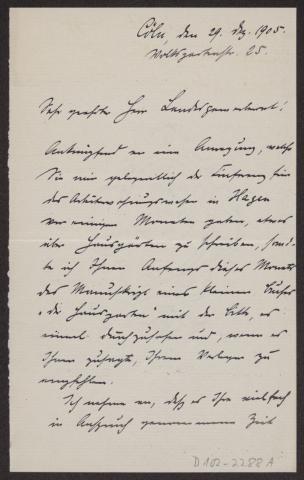 Cöln, den 29. Dez. 1905.
Volksgartenstr. 25.
Sehr geehrter Herr Landesgewerberat!
Anknüpfend an eine Anregung, welche
Sie mir gelegentlich der Konferenz für
das Arbeiterwohnungswesen in Hagen
vor einigen Monaten gaben, etwas
über Hausgärten zu schreiben, sand-
te ich Ihnen Anfangs dieses Monats
das Manuskript eines kleinen Buches
"der Hausgarten" mit der Bitte, es
einmal durchzusehen und, wenn es
Ihnen zusagte, Ihrem Verleger zu
empfehlen.
Ich nehme an, daß es Ihre vielfach
in Anspruch genommene Zeit
D 102-2288 A